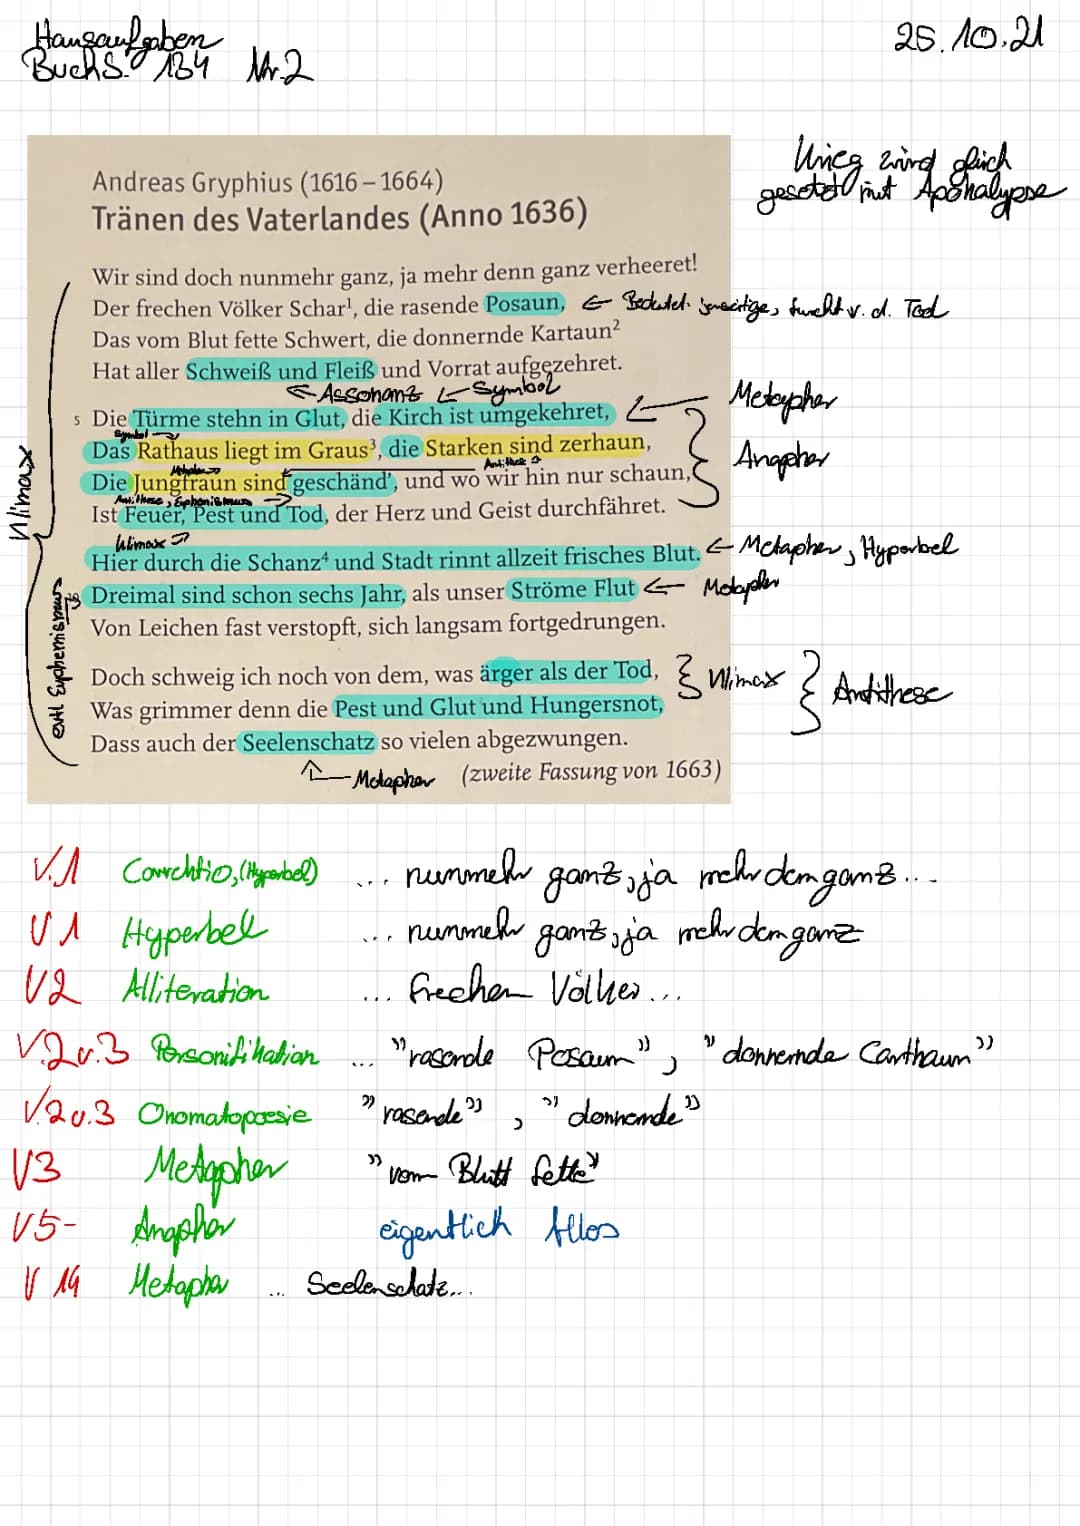 Hausaufgaben
Buch S. 134 Nr. 2
25.10.21
Krieg wird gleich
gesetzt mit Apokalypse
Andreas Gryphius (1616–1664)
Tränen des Vaterlandes (Anno 1636)
Wir sind doch nunmehr ganz, ja mehr denn ganz verheeret!
Der frechen Völker Schar¹, die rasende Posaun, ← Bedeutet jenseitige, furcht v. d. Tod
Das vom Blut fette Schwert, die donnernde Kartaun²
Hat aller Schweiß und Fleiß und Vorrat aufgezehret.
← Assonanz ← Symbol
5 Die Türme stehn in Glut, die Kirch ist umgekehret, ← Metapher
Symbol →
Das Rathaus liegt im Graus³, die Starken sind zerhaun, Anapher
Metapher → Antithese
Die Jungfraun sind geschänd', und wo wir hin nur schaun,
Antithese, Euphemismus →
Ist Feuer, Pest und Tod, der Herz und Geist durchfähret.
Klimax
Hier durch die Schanz⁴ und Stadt rinnt allzeit frisches Blut. ← Metapher, Hyperbel
10 Dreimal sind schon sechs Jahr, als unser Ströme Flut ← Metapher
Von Leichen fast verstopft, sich langsam fortgedrungen.
Doch schweig ich noch von dem, was ärger als der Tod, } Klimax } Antithese
Was grimmer denn die Pest und Glut und Hungersnot,
Dass auch der Seelenschatz so vielen abgezwungen.
↑ Metapher (zweite Fassung von 1663)
Klimax
evtl Euphemismus
V.1 Correhtio, (Hyperbel) ... nunmehr ganz, ja mehr denn ganz...
V1 Hyperbell ... nunmehr ganz, ja mehr denn ganz
V2 Alliteration ... frechen Völker...
V.2u.3 Personifikation ... "rasende Posaun", "donnernde Carthaun"
V.2u.3 Onomatopoesie "rasende", "donnernde"
V3 Metapher "vom Blutt fette"
V5- Anapher eigentlich Alles
V 14 Metapher ... Seelenschatz...